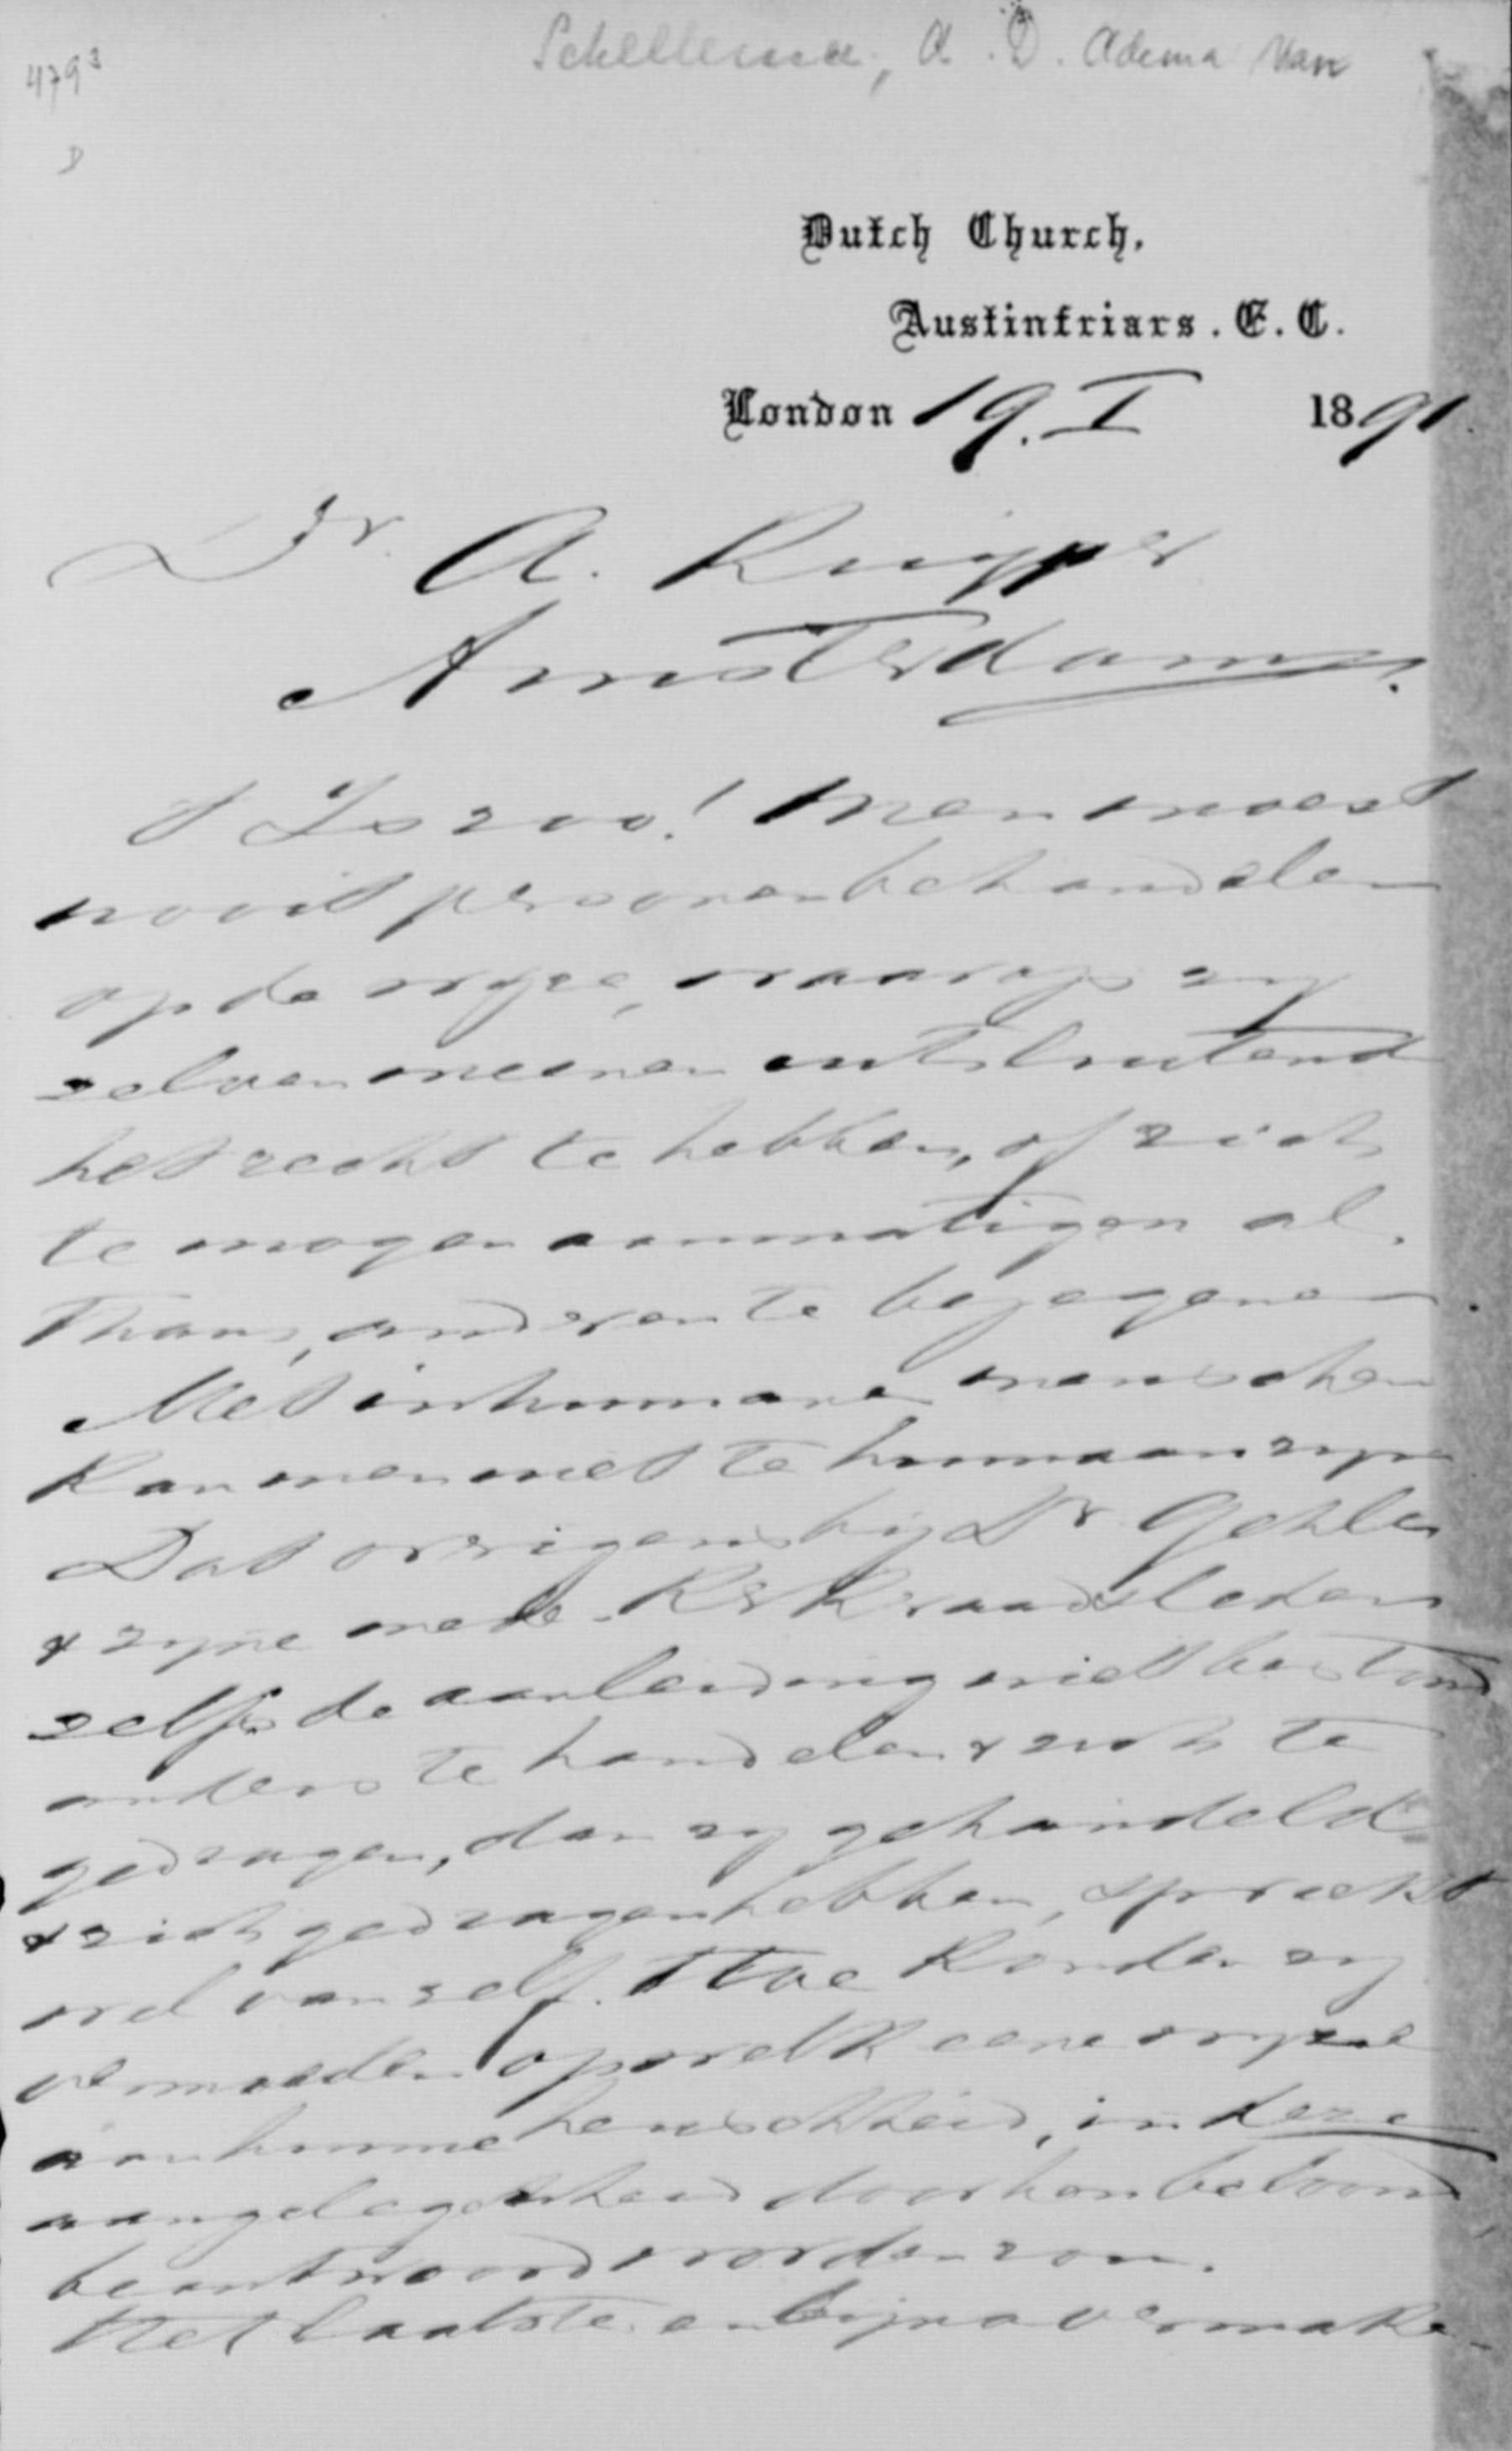 4793
Scheltema, A. D. Adema Van
D
Dutch Church,
Austinfriars. E. C.
London 19. I 1891.
Dr. A. Kuyper
Amsterdam.
't Is zoo! Men moest
nooit personen behandelen
op de wyze, waarop zy
zelven meenen uitsluitend
het recht te hebben, of zich
te mogen aanmatigen al.
thans, anderen te bejegenen.
Met inhumane menschen
kan men niet te humaan zyn
Dat overigens by Dr
& zyne mede-Kerkraadsleden
zelfs de aanleiding niet bestond
anders te handelen & zich te
gedragen, dan zy gehandeld
& zich gedragen hebben, spreekt
wel van zelf. Hoe konden zy
vermoeden op welk eene wyze
aan hunne heuschheid, in deze
aangelegenheid door hen betoond,
beantwoord worden zou.
Het laatste en byna vermake-